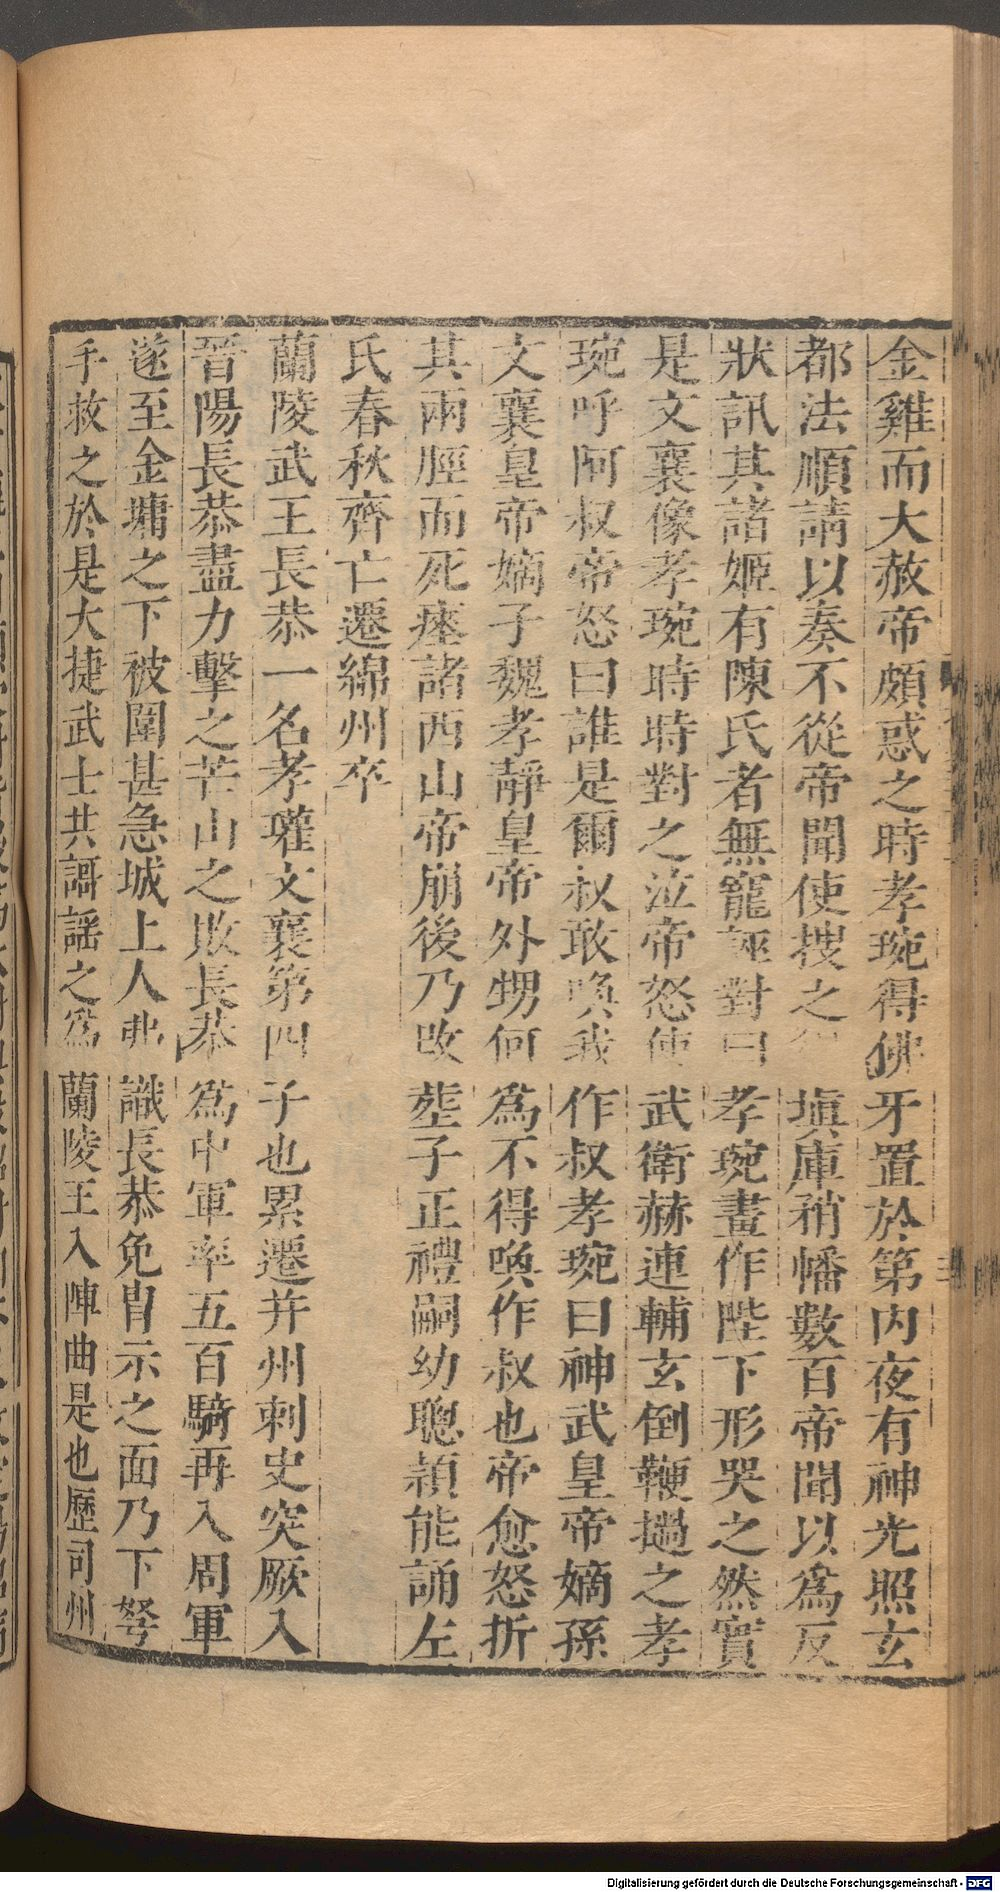 金雞而大赦帝頗惑之時孝琬得佛牙置於第内夜有神光照玄
都法順請以奏不從帝聞使搜之得塡庫矟幡數百帝聞以爲反
狀訊其諸姬有陳氏者無寵誣對曰孝琬畫作陛下形哭之然實
是文襄像孝琬時時對之泣帝怒使武衛赫連輔玄倒鞭撾之孝
琬呼阿叔帝怒曰誰是爾叔敢喚我作叔孝琬曰神武皇帝嫡孫
文襄皇帝嫡子魏孝靜皇帝外甥何爲不得喚作叔也帝愈怒折
其兩脛而死瘞諸西山帝崩後乃改葬子正禮嗣幼聰穎能誦左
氏春秋齊亡遷綿州卒
蘭陵武王長恭一名孝瓘文襄第四子也累遷并州刺史突厥入
晉陽長恭盡力擊之芒山之敗長恭爲中軍率五百騎再入周軍
遂至金墉之下被圍甚急城上人弗識長恭免冑示之面乃下弩
手救之於是大捷武士共謌謠之爲蘭陵王入陣曲是也歷司州
Digitalisierung gefördert durch die Deutsche Forschungsgemeinschaft - DFG